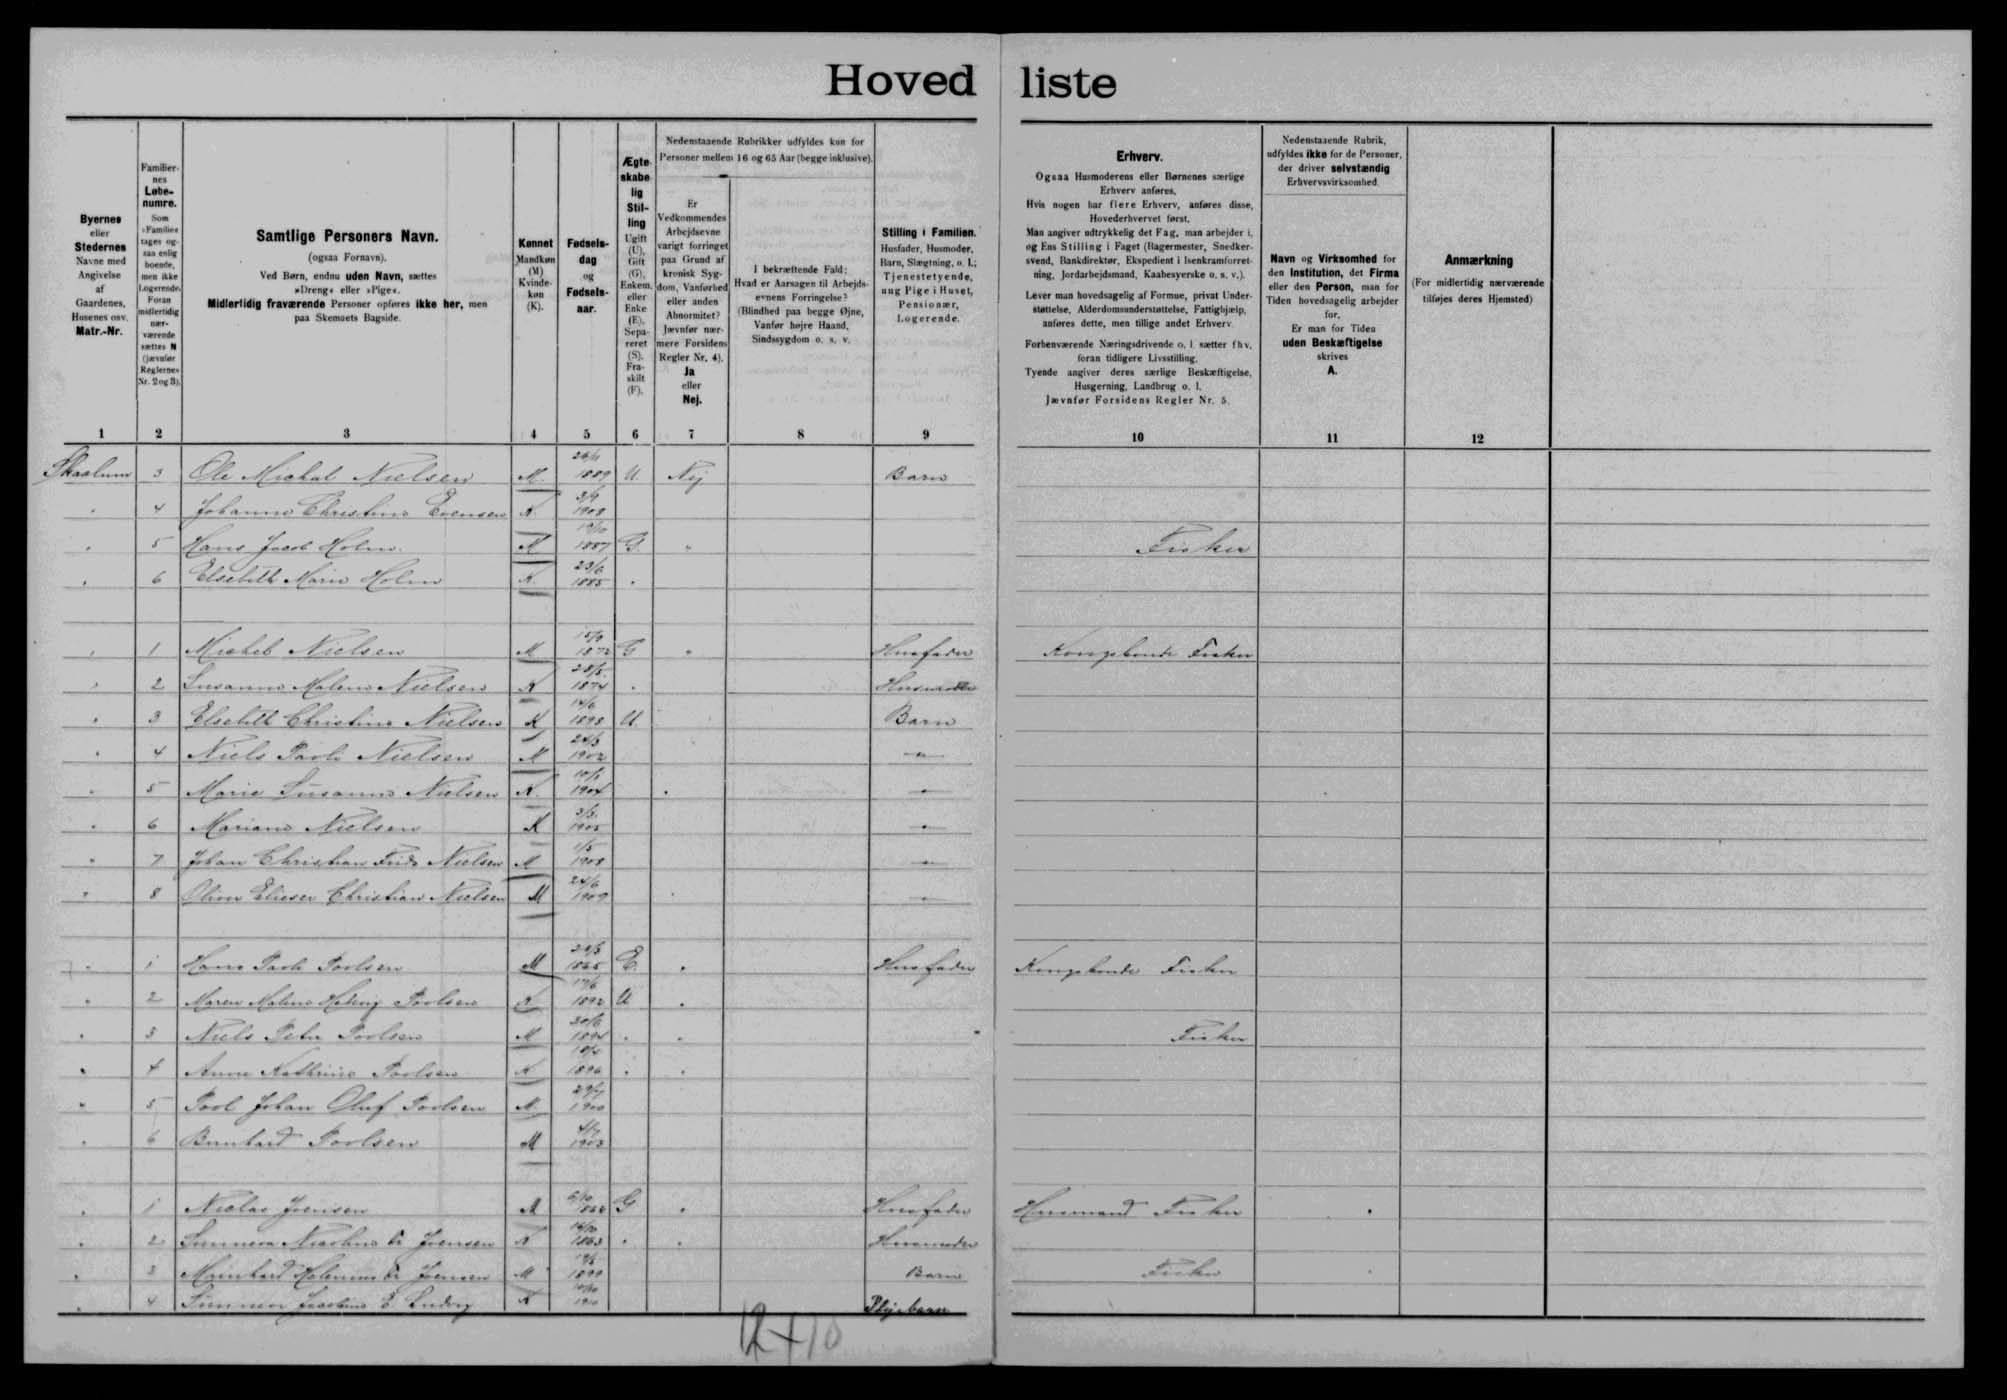 Hoved liste
Byernes
eller
Stedernes
Navne med
Angivelse
af
Gaardenes,
Husenes osv.
Matr.-Nr.
Familier-
nes
Løbe-
numre.
Som
»Familie«
tages og-
saa enlig
boende,
men ikke
Logerende.
Foran
midlertidig
nær-
værende
sættes N
(jævnfør
Reglernes
Nr. 2 og 3).
Samtlige Personers Navn.
(ogsaa Fornavn).
Ved Børn, endnu uden Navn, sættes
»Dreng« eller »Pige«.
Midlertidig fraværende Personer opføres ikke her, men
paa Skemaets Bagside.
Kønnet
Mandkøn
(M)
Kvinde-
køn
(K).
Fødsels-
dag
og
Fødsels-
aar.
Ægte-
skabe
lig
Stil-
ling
Ugift
(U),
Gift
(G),
Enkem.
eller
Enke
(E),
Sepa-
reret
(S),
Fra-
skilt
(F).
Nedenstaaende Rubrikker udfyldes kun for
Personer mellem 16 og 65 Aar (begge inklusive).
Er
Vedkommendes
Arbejdsevne
varigt forringet
paa Grund af
kronisk Syg-
dom, Vanførhed
eller anden
Abnormitet?
Jævnfør nær-
mere Forsidens
Regler Nr. 4).
Ja
eller
Nej.
I bekræftende Fald:
Hvad er Aarsagen til Arbejds-
evnens Forringelse?
(Blindhed paa begge Øjne,
Vanfør højre Haand,
Sindssygdom o. s. v.
Stilling i Familien.
Husfader, Husmoder,
Barn, Slægtning, o. l.;
Tjenestetyende,
ung Pige i Huset,
Pensionær,
Logerende.
Erhverv.
Ogsaa Husmoderens eller Børnenes særlige
Erhverv anføres.
Hvis nogen har flere Erhverv, anføres disse,
Hovederhvervet først.
Man angiver udtrykkelig det Fag, man arbejder i,
og Ens Stilling i Faget (Bagermester, Snedker-
svend, Bankdirektør, Ekspedient i Isenkramforret-
ning, Jordarbejdsmand, Kaabesyerske o. s. v.).
Lever man hovedsagelig af Formue, privat Under-
støttelse, Alderdomsunderstøttelse, Fattighjælp,
anføres dette, men tillige andet Erhverv.
Forhenværende Næringsdrivende o. l. sætter fhv.
foran tidligere Livsstilling.
Tyende angiver deres særlige Beskæftigelse,
Husgerning, Landbrug o. l.
Jævnfør Forsidens Regler Nr. 5.
Nedenstaaende Rubrik,
udfyldes ikke for de Personer,
der driver selvstændig
Erhvervsvirksomhed.
Navn og Virksomhed for
den Institution, det Firma
eller den Person, man for
Tiden hovedsagelig arbejder
for.
Er man for Tiden
uden Beskæftigelse
skrives
A.
Anmærkning
(For midlertidig nærværende
tilføjes deres Hjemsted)
1 2 3 4 5 6 7 8 9 10 11 12
Skaalum 3 Ole Michal Nielsen M. 26/11 1889 U. Nej Barn
" 4 Johanne Christine Evensen K. 1908
" 5 Hans Jacob Holm M 19/10 1887 G. " Fisker
" 6 Elsebith Marie Holm K. 23/6 1885 "
" 1 Micheb Nielsen M 1872 G " Husfader Kongsbonde Fisker
" 2 Susanne Malene Nielsen K 28/5 1874 " Husmoder
" 3 Elsebith Christine Nielsen K 14/6 1898 U. Barn
" 4 Niels Pauli Nielsen M 24/3 1902 "
" 5 Marie Susanne Nielsen K. 1904 "
" 6 Mariane Nielsen K 1905 "
" 7 Johan Christian Nielsen M 1/5 1908 "
" 8 Oliver Elieser Christian Nielsen M 24/6 1909 "
" 1 Hans Poolsen M 1865 E. " Husfader Kongsbonde Fisker
" 2 Maren Malene Poolsen K 17/6 1892 U "
" 3 Niels Peter Poolsen M 20/6 1894 " " Fisker
" 4 Anne Kathrine Poolsen K 1896 " "
" 5 Pool Johan Oluf Poolsen M. 1900
" 6 Bernhard Poolsen M 1903
" 1 Niclas Joensen M 6/10 G " Husfader Husmand Fisker
" 2 Sunneva Joensen K 1863 " " Husmoder
" 3 Joensen M 1899 Barn Fisker
" 4 K 1910 Plejebarn
12+10